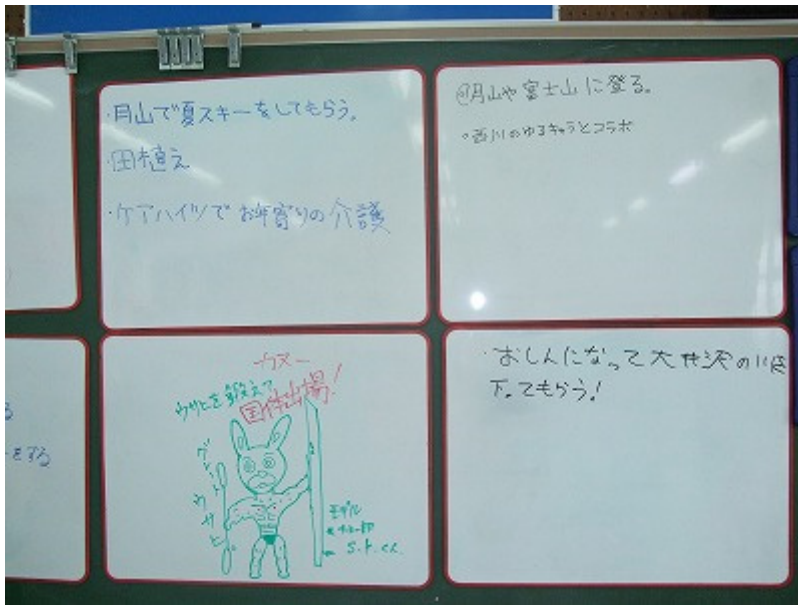 ・月山で夏スキーをしてもらう。
・田植え
・ケアハイツでお年寄りの介護
月山や富士山に登る。
・西川のゆるキャラとコラボ
る
をする
ウサヒを鍛えて
国体出場!
ウサヒ
モデル
・おしんになって大井沢の川を
下ってもらう!